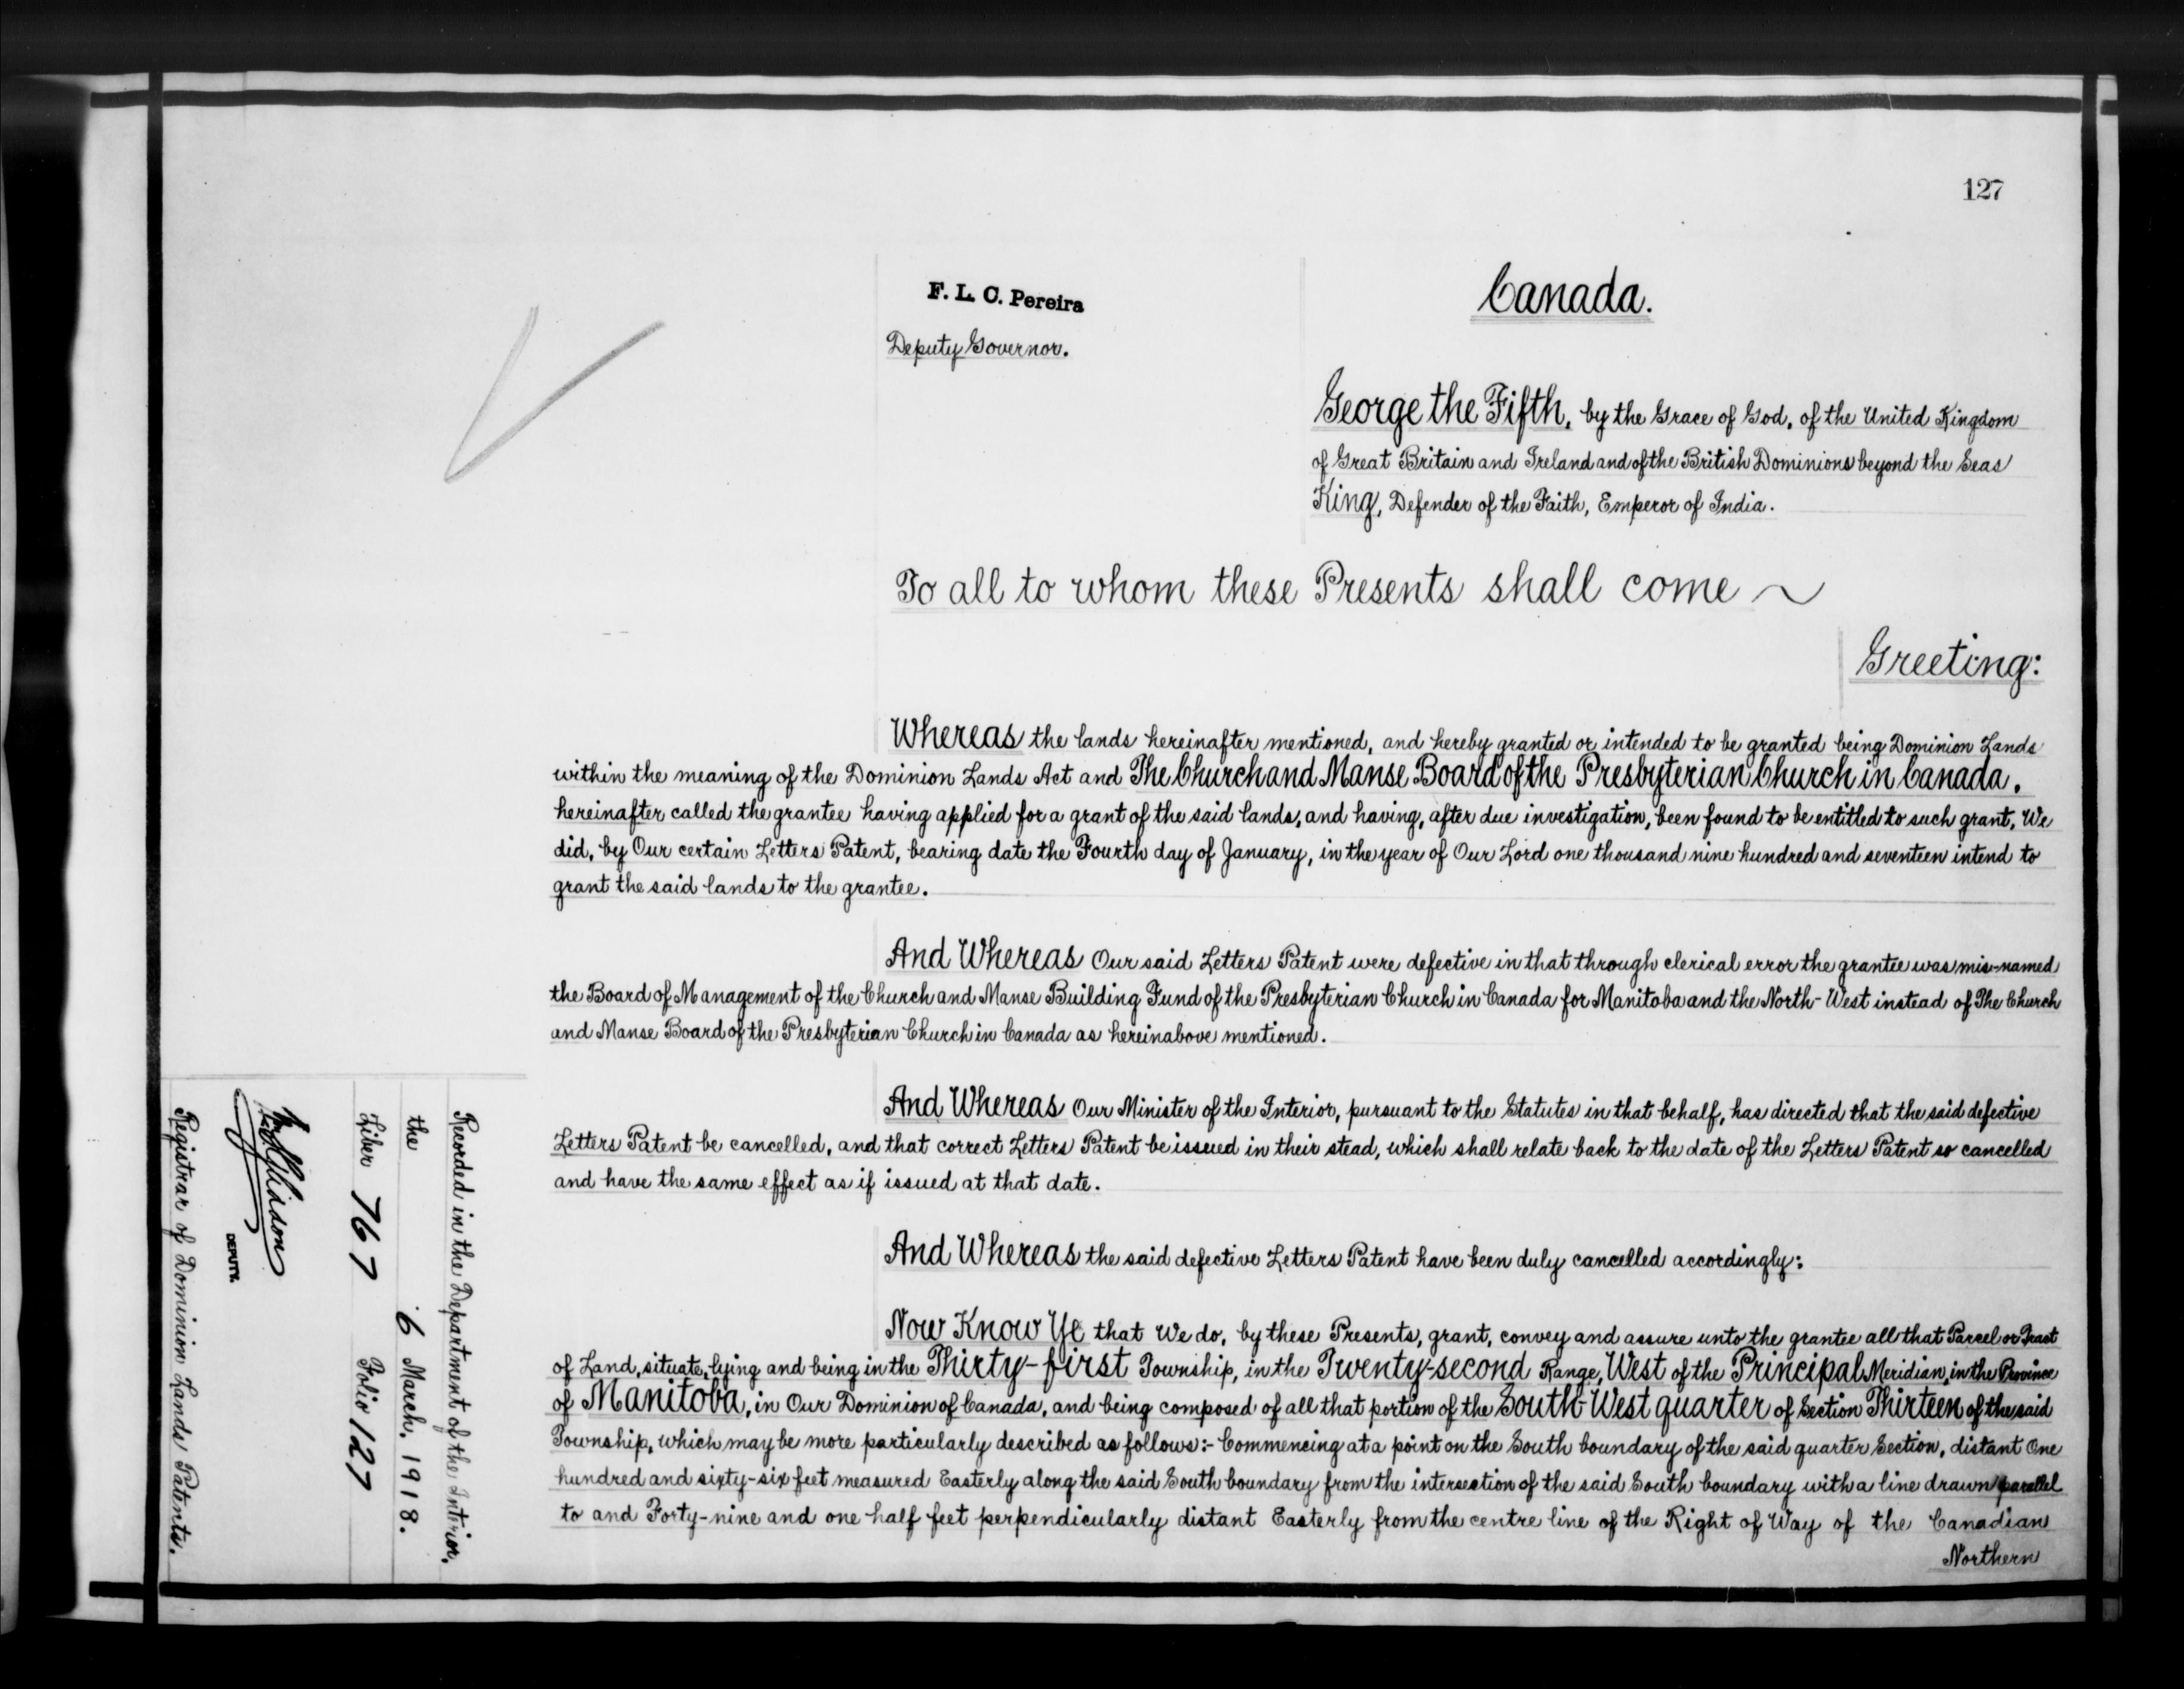 127
F. L. C. Pereira
Deputy Governor.
Canada.
George the Fifth, by the Grace of God, of the United Kingdom
of Great Britain and Ireland and of the British Dominions beyond the Seas
King, Defender of the Faith, Emperor of India.
To all to whom these Presents shall come ~
Greeting:
Whereas the lands hereinafter mentioned, and hereby granted or intended to be granted being Dominion Lands
within the meaning of the Dominion Lands Act and The Church and Manse Board of the Presbyterian Church in Canada.
hereinafter called the grantee having applied for a grant of the said lands, and having, after due investigation, been found to be entitled to such grant, We
did, by Our certain Letters Patent, bearing date the Fourth day of January, in the year of Our Lord one thousand nine hundred and seventeen intend to
grant the said lands to the grantee.
And Whereas Our said Letters Patent were defective in that through clerical error the grantee was mis-named
the Board of Management of the Church and Manse Building Fund of the Presbyterian Church in Canada for Manitoba and the North-West instead of The Church
and Manse Board of the Presbyterian Church in Canada as hereinabove mentioned.
And Whereas Our Minister of the Interior, pursuant to the Statutes in that behalf, has directed that the said defective
Letters Patent be cancelled, and that correct Letters Patent be issued in their stead, which shall relate back to the date of the Letters Patent so cancelled
and have the same effect as if issued at that date.
And Whereas the said defective Letters Patent have been duly cancelled accordingly:
Now Know Ye that We do, by these Presents, grant, convey and assure unto the grantee all that Parcel or Tract
of Land, situate, lying and being in the Thirty-first Township, in the Twenty-second Range, West of the Principal Meridian, in the Province
of Manitoba, in Our Dominion of Canada, and being composed of all that portion of the South-West quarter of Section Thirteen of the said
Township, which may be more particularly described as follows:- Commencing at a point on the South boundary of the said quarter Section, distant One
hundred and sixty-six feet measured Easterly along the said South boundary from the intersection of the said South boundary with a line drawn parallel
to and Forty-nine and one half feet perpendicularly distant Easterly from the centre line of the Right of Way of the Canadian
Northern
Recorded in the Department of the Interior,
the 6 March, 1918.
Liber 767 Folio 127
DEPUTY.
Registrar of Dominion Lands Patents.